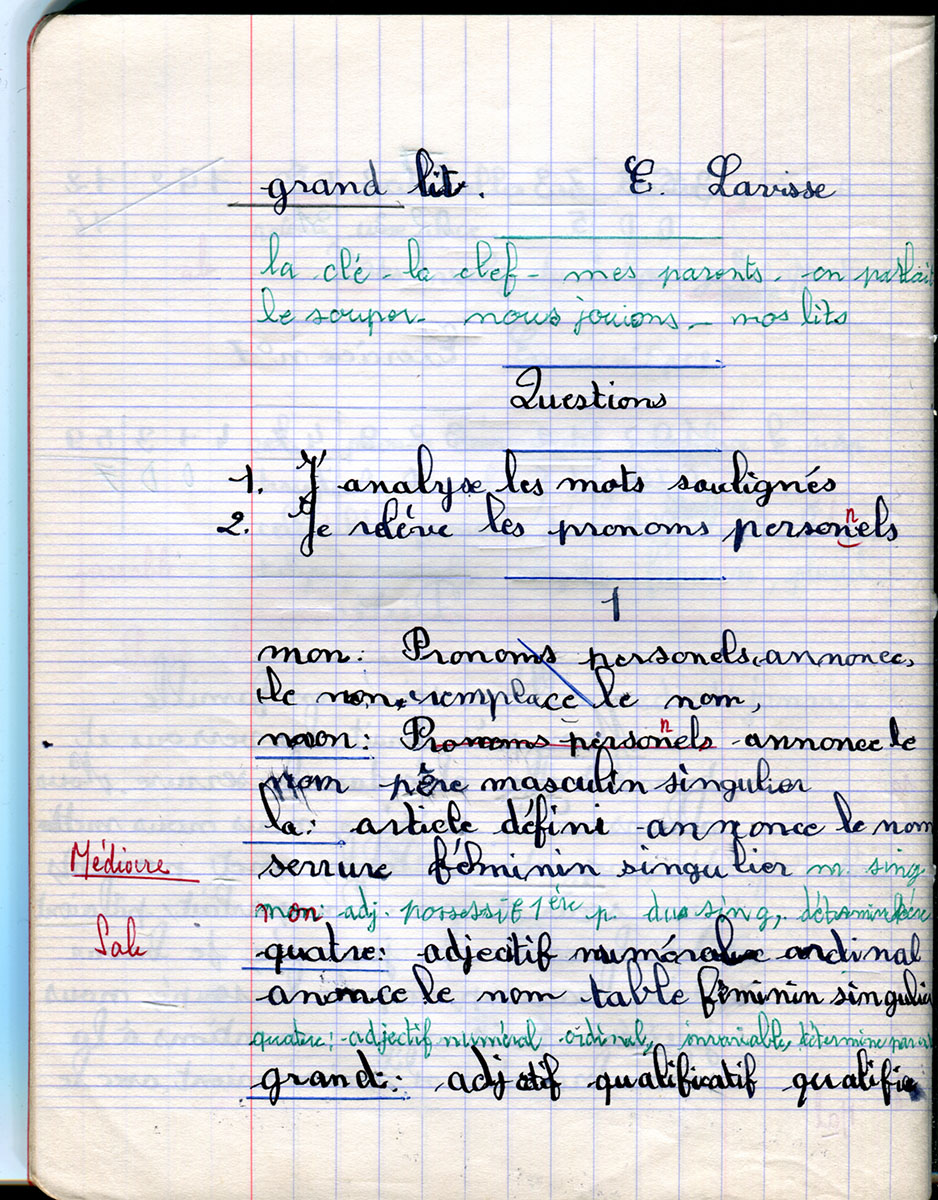 grand lit. E. Lavisse
la clé - la clef - mes parents - on parlait
le souper - nous jouions - mos lits
Questions
1. J'analyse les mots soulignés
2. Je relève les pronoms personels
n
1
mon: Pronoms personels, annonce,
le non, remplace le nom,
mon: Pronoms personels annonce le
n
nom père masculin singulier
la: article défini annonce le nom
Médiocre
serrure féminin singulier m. sing
mon: adj. possessif 1ère p. du sing, détermine père
Sale
quatre: adjectif numéral ordinal
anonce le nom table féminin singulier
quatre: adjectif numéral ordinal, invariable, détermine
grand: adjectif qualificatif qualifie